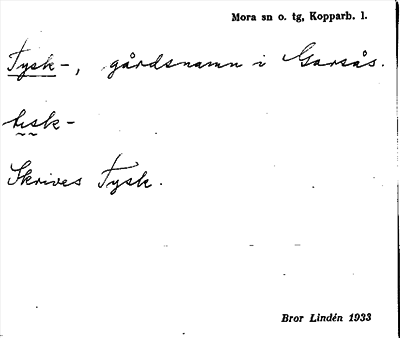 Mora sn o. tg, Kopparb. l.
Tysk-, gårdsnamn i Garsås.
tisk-
Skrives Tysk.
Bror Lindén 1933